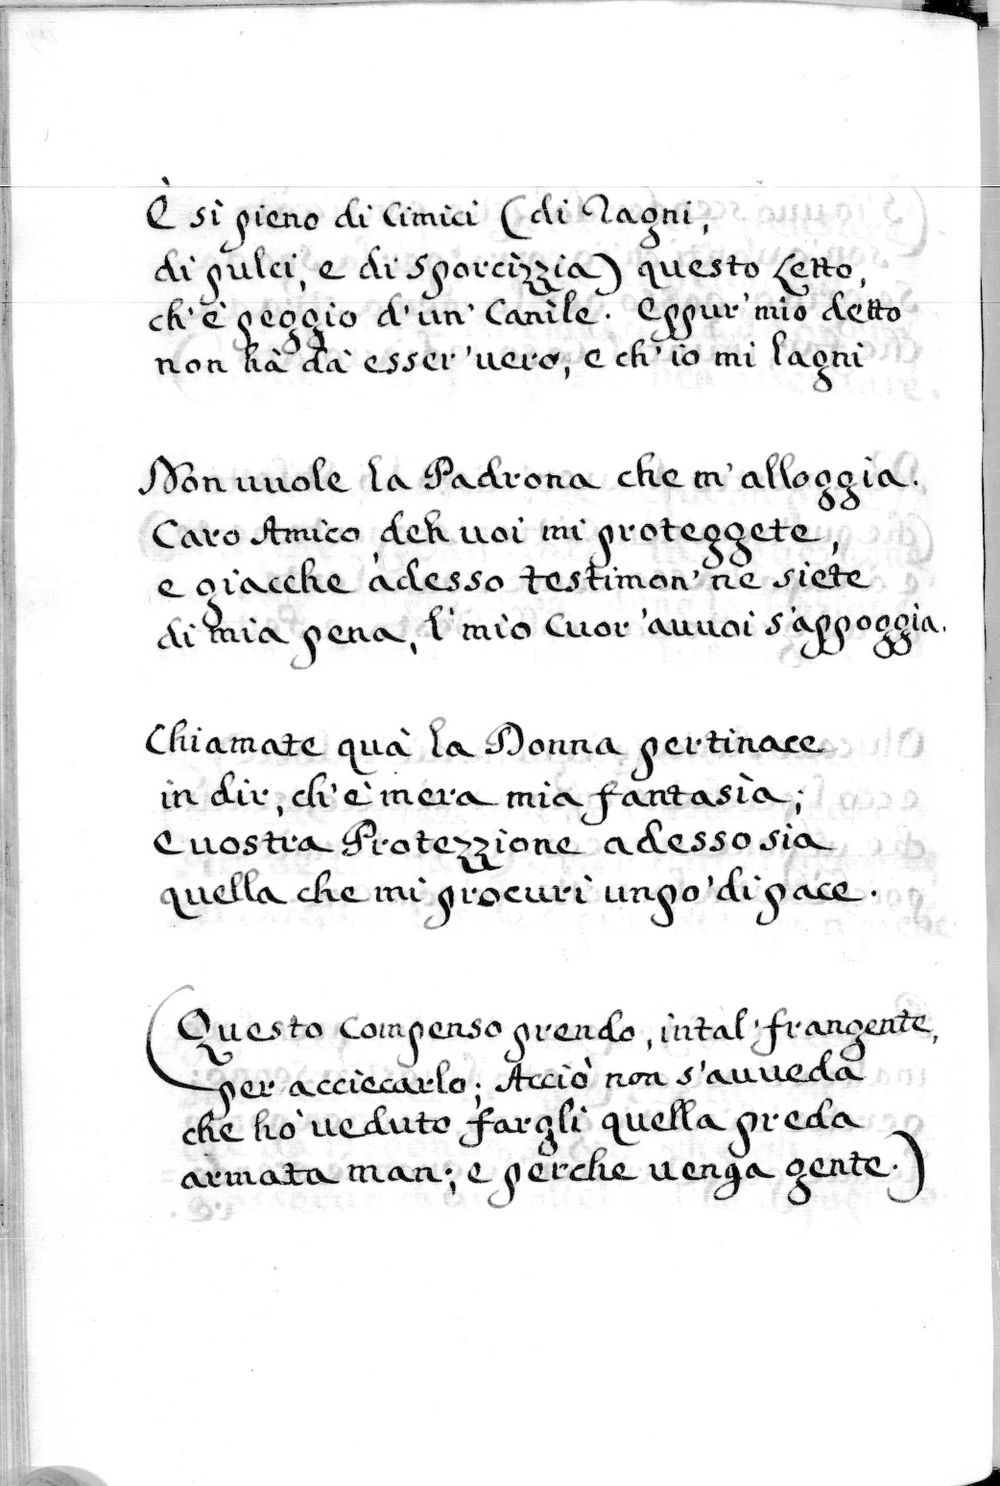 È sì pieno di Cimici (di Ragni,
di pulci, e di sporcizzia) questo Letto,
ch'è peggio d'un' Canìle. Eppur' mio detto
non hà dà esser' uero, e ch'io mi lagni
Non uuole la Padrona che m'alloggia.
Caro Amico, deh uoi mi proteggete,
e giacche adesso testimon' ne siete
di mia pena, l' mio Cuor' auuoi s'appoggia.
Chiamate quà la Donna pertinace
in dir, ch'è mera mia fantasìa;
E uostra Protezzione adesso sia
quella che mi procuri un po' di pace.
(Questo Compenso prendo, in tal' frangente,
per acciecarlo; Acciò non s'auueda
che hò ueduto fargli quella preda
armata man; e perche uenga gente.)